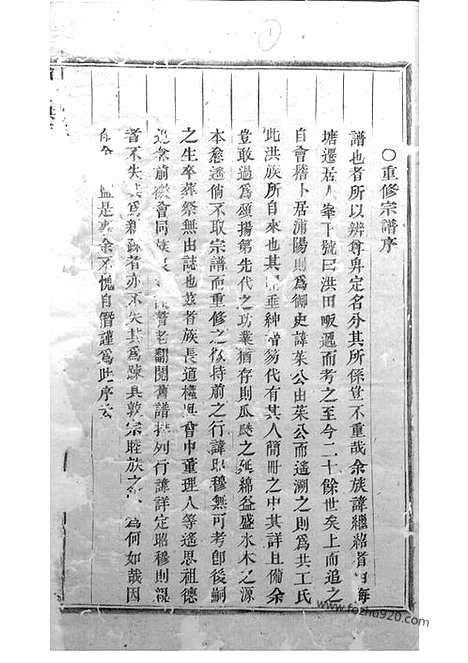 ○重修宗譜序
譜也者所以辨尊卑定名分其所係豈不重哉余族諱繼紹者由海
塘遷居人峯下號曰洪田畈遞而考之至今二十餘世矣上而追之
自會稽卜居浦陽則爲御史諱茱公由茱公而遙溯之則爲共工氏
此洪族所自來也其垂紳搢笏代有其人簡冊之中其詳且備余
豈敢過爲頌揚第先代之功業猶存則瓜瓞之延綿益盛水木之源
本愈遙倘不取宗譜而重修之行諱昭穆無可考卽後嗣
之生卒葬祭無由誌也茲者族長道槐與會中董理人等遙思祖德
追念前徽會同族耆老翻閱舊譜排列行諱詳定昭穆則親
者不失其爲親疎者亦不失其爲疎具敦宗睦族之爲何如哉因
是弗余不愧自僭謹爲此序云
www.fozhu920.com